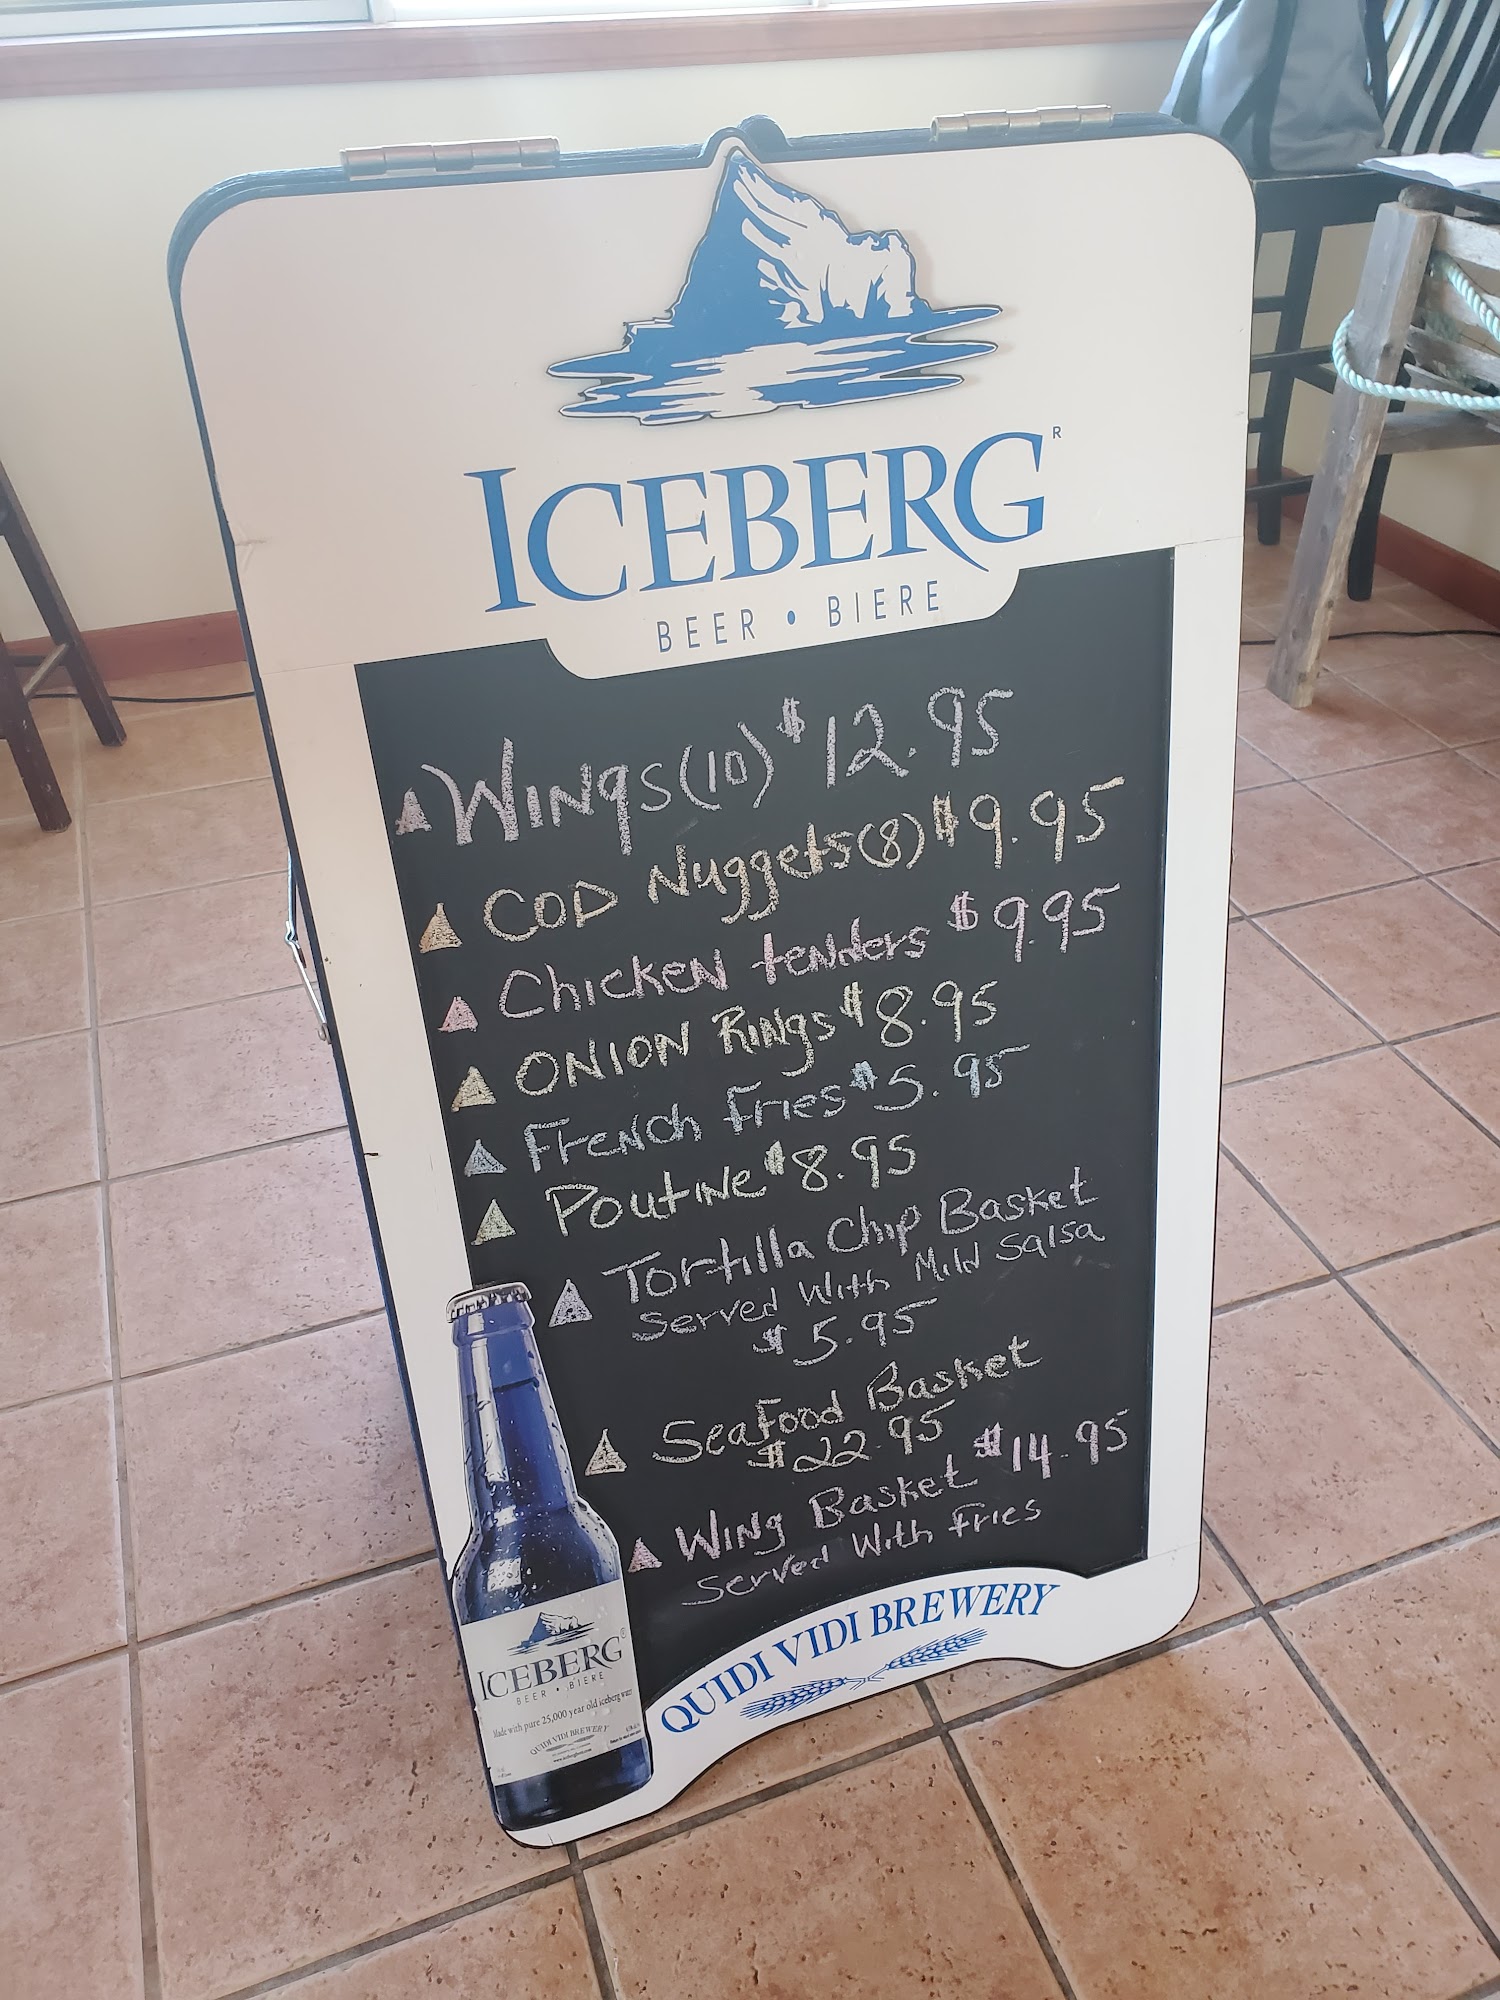 ICEBERG®
BEER • BIERE
Wings (10) $12.95
COD Nuggets (8) $9.95
Chicken tenders $9.95
ONION Rings $8.95
French Fries $5.95
Poutine $8.95
Tortilla Chip Basket
Served With Mild Salsa
$5.95
Seafood Basket
$22.95
Wing Basket $14.95
Served With Fries
QUIDI VIDI BREWERY
ICEBERG®
BEER • BIERE
Made with pure 25,000 year old iceberg water
QUIDI VIDI BREWERY